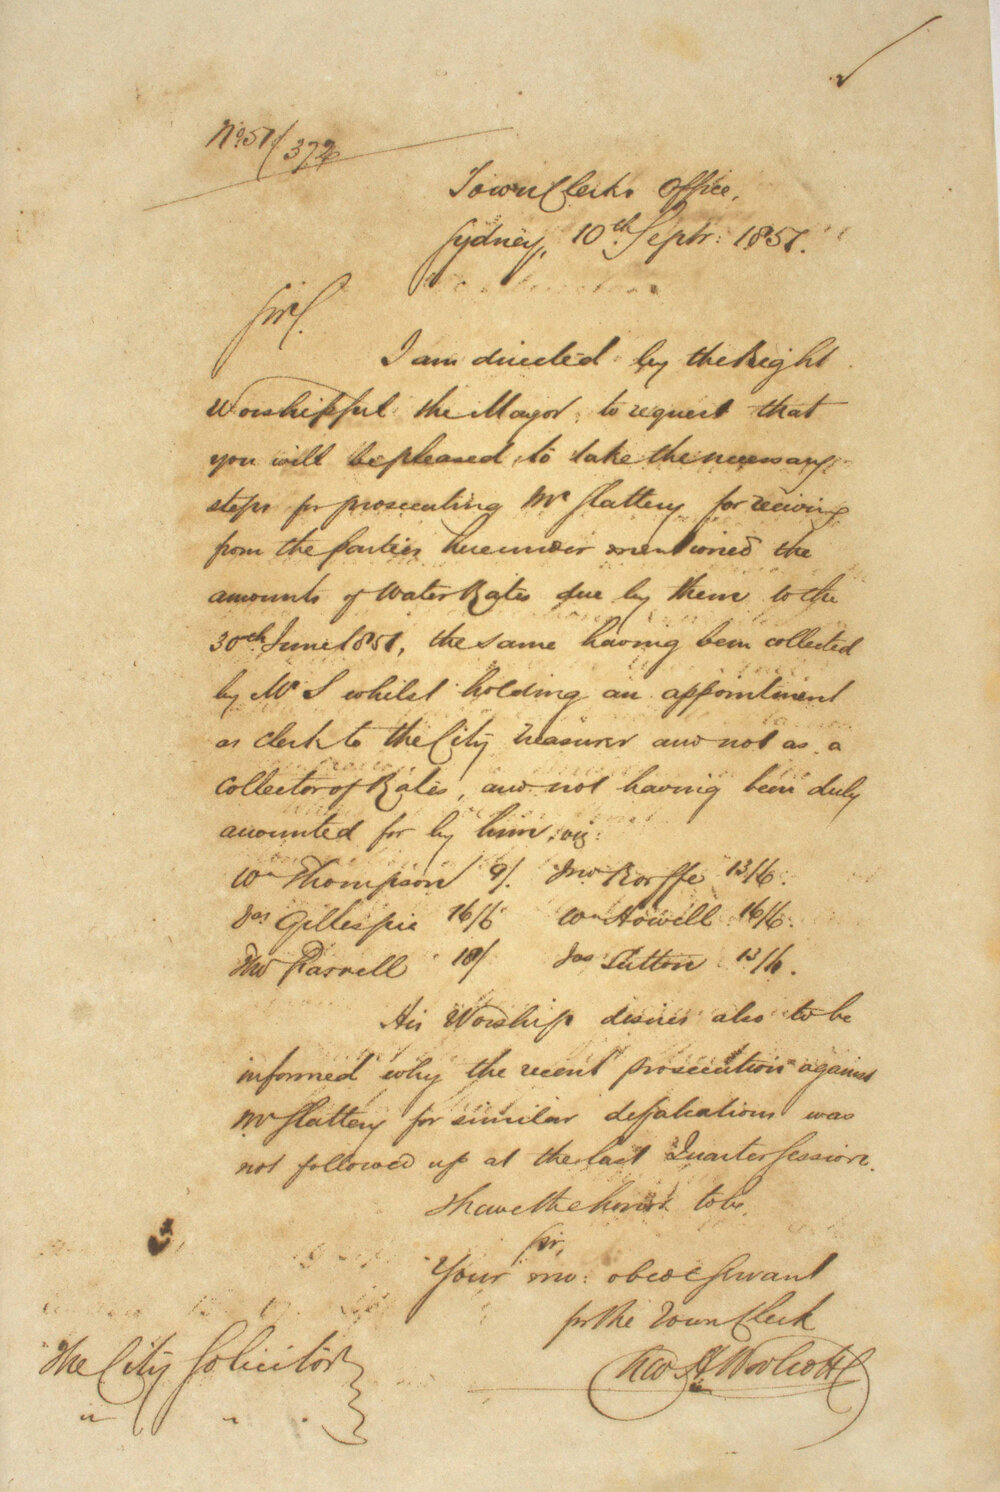 No 57/372
Town Clerks Office,
Sydney, 10th Septr: 1857.
Sir,
I am directed by the Right
Worshipful the Mayor, to request that
you will be pleased, to take the necessary
steps for prosecuting Mr Slattery for receiving
from the parties hereunder mentioned the
amounts of Water Rates due by them to the
30th June 1857, the same having been collected
by Mr S whilst holding an appointment
as Clerk to the City Treasurer and not as a
Collector of Rates, and not having been duly
accounted for by him, viz:
Wm Thompson 9/. Jno Rorffe 13/6.
Jas Gillespie 16/6 Wm Howell 16/6.
Thos Farrell 18/ Jas Sutton 13/6.
His Worship desires also to be
informed why the recent prosecution against
Mr Slattery for similar defalcations was
not followed up at the last Quarter Session.
I have the honor to be,
Sir,
Your mo: obedt Servant
for the Town Clerk
Woolcott
The City Solicitor
" " .